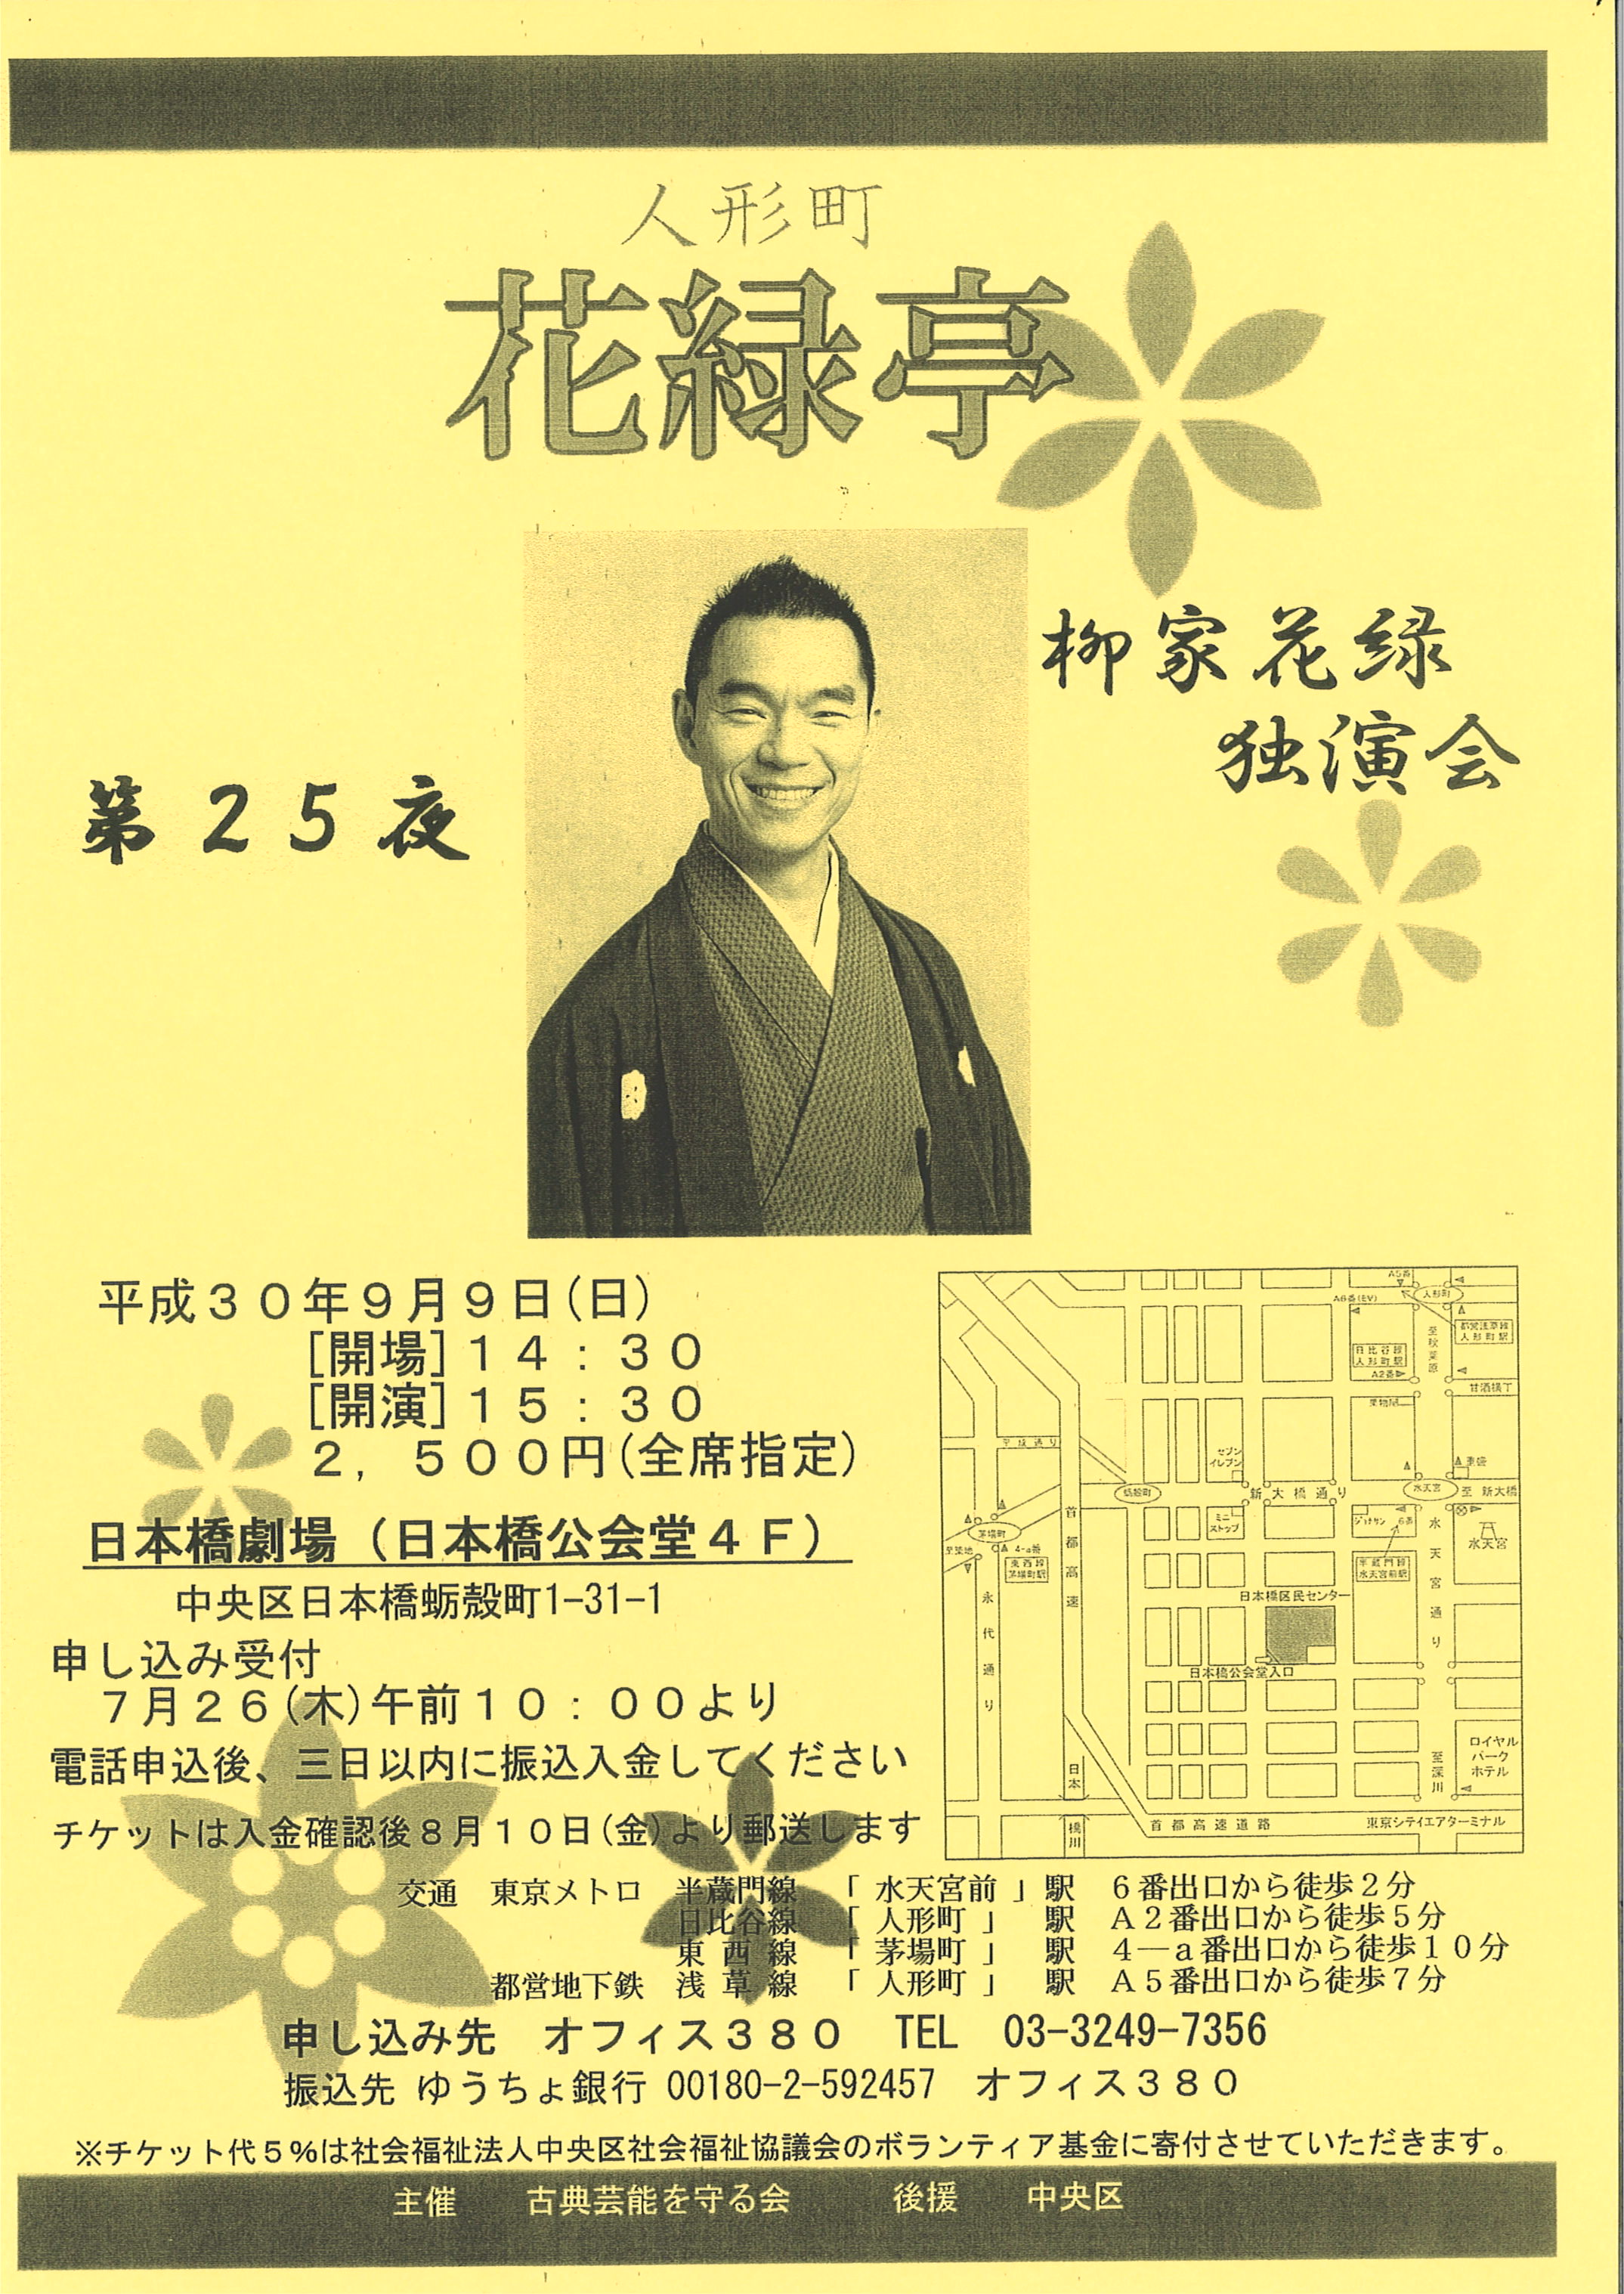 人形町
花緑亭
柳家花緑
独演会
第２５夜
平成３０年９月９日(日)
[開場]１４：３０
[開演]１５：３０
２，５００円(全席指定)
日本橋劇場（日本橋公会堂４Ｆ）
中央区日本橋蛎殻町1-31-1
申し込み受付
７月２６(木)午前１０：００より
電話申込後、三日以内に振込入金してください
チケットは入金確認後８月１０日(金)より郵送します
A5番
人形町
A6番(EV)
都営浅草線
人形町駅
至秋葉原
日比谷線
人形町駅
A2番
甘酒横丁
セブン
イレブン
平成通り
蛎殻町
新大橋通り
水天宮
至 新大橋
ミニ
ストップ
ジョナサン
6番
水天宮
茅場町
4-a番
東西線
茅場町駅
半蔵門線
水天宮前駅
首都高速
水天宮通り
永代通り
日本橋区民センター
日本橋公会堂入口
ロイヤル
パーク
ホテル
至深川
日本
橋川
首都高速道路
東京シティエアターミナル
交通　東京メトロ　半蔵門線　「 水天宮前 」駅　６番出口から徒歩２分
日比谷線　「 人形町 」　駅　Ａ２番出口から徒歩５分
東 西 線　「 茅場町 」　駅　４―ａ番出口から徒歩１０分
都営地下鉄　浅 草 線　「 人形町 」　駅　Ａ５番出口から徒歩７分
申し込み先　オフィス３８０　TEL　03-3249-7356
振込先 ゆうちょ銀行 00180-2-592457　オフィス３８０
※チケット代５%は社会福祉法人中央区社会福祉協議会のボランティア基金に寄付させていただきます。
主催　　古典芸能を守る会　　　後援　　中央区